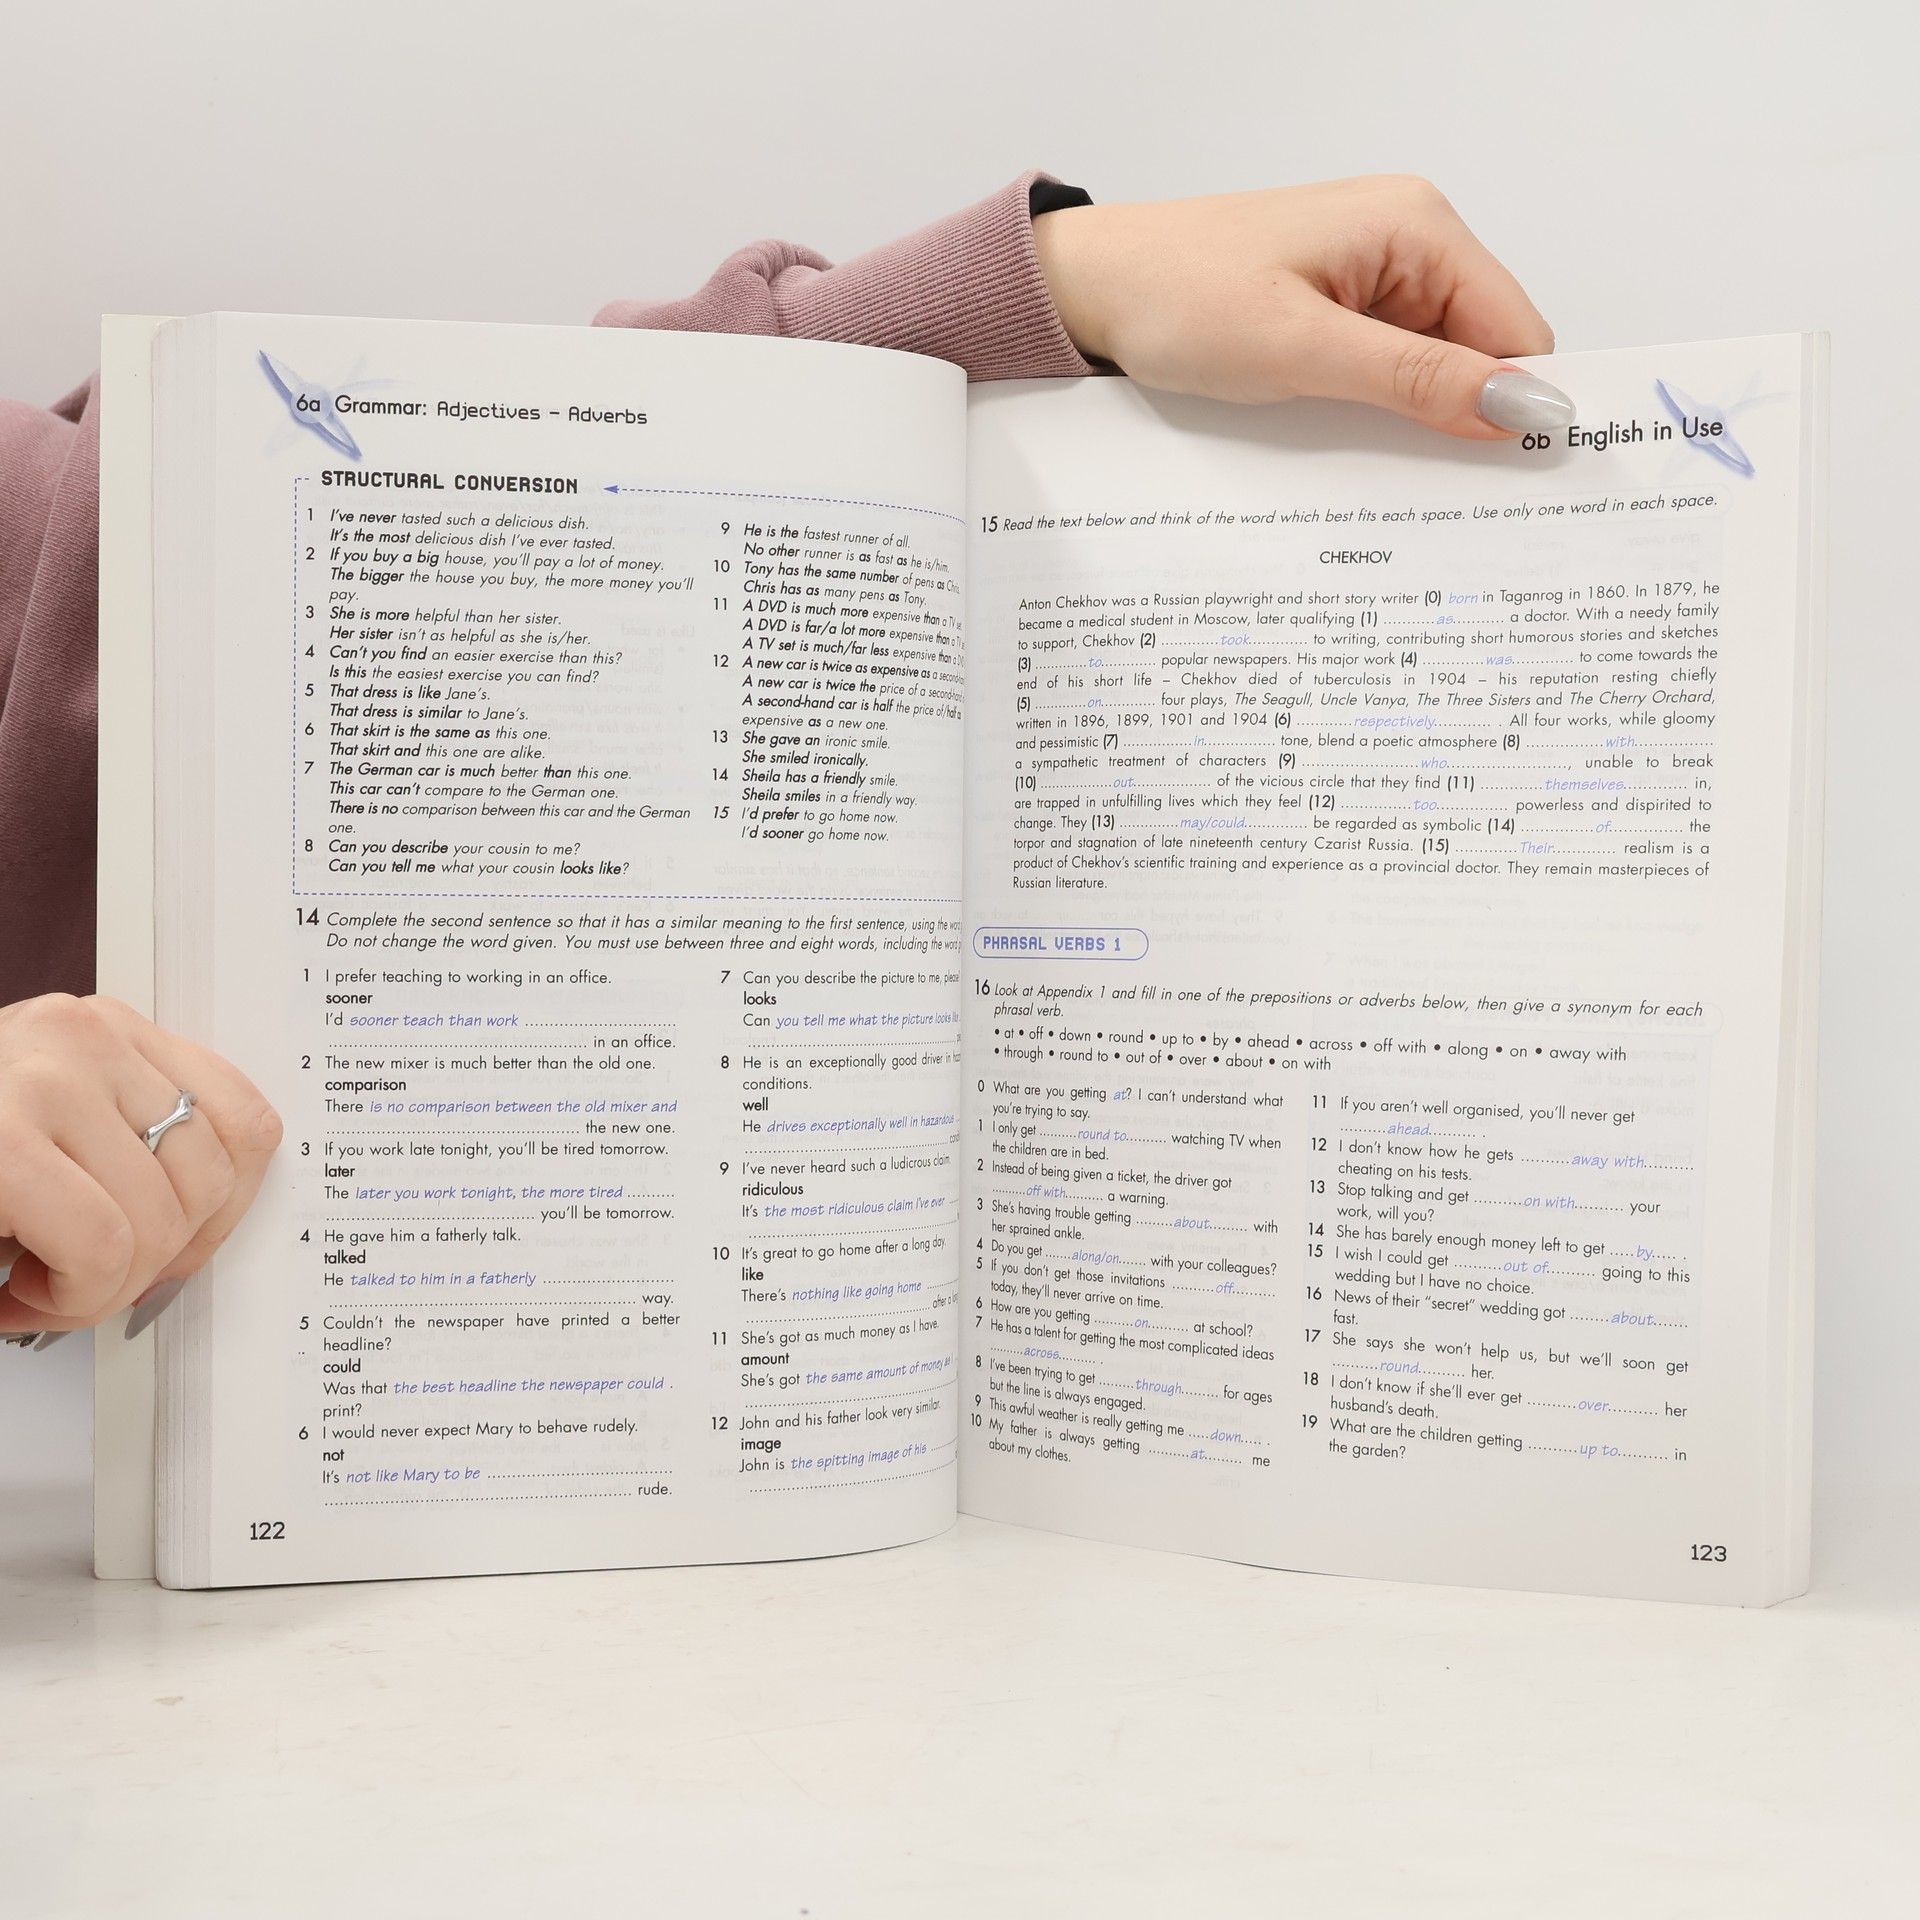 6a Grammar: Adjectives – Adverbs
STRUCTURAL CONVERSION
1 I've never tasted such a delicious dish.
It's the most delicious dish I've ever tasted.
2 If you buy a big house, you'll pay a lot of money.
The bigger the house you buy, the more money you'll
pay.
3 She is more helpful than her sister.
Her sister isn't as helpful as she is/her.
4 Can't you find an easier exercise than this?
Is this the easiest exercise you can find?
5 That dress is like Jane's.
That dress is similar to Jane's.
6 That skirt is the same as this one.
That skirt and this one are alike.
7 The German car is much better than this one.
This car can't compare to the German one.
There is no comparison between this car and the German
one.
8 Can you describe your cousin to me?
Can you tell me what your cousin looks like?
9 He is the fastest runner of all.
No other runner is as fast as he is/him.
10 Tony has the same number of pens as Chris.
Chris has as many pens as Tony.
11 A DVD is much more expensive than a TV
A DVD is far/a lot more expensive than a TV
A TV set is much/far less expensive than a
12 A new car is twice as expensive as a
A new car is twice the price of a
A second-hand car is half the price of/half as
expensive as a new one.
13 She gave an ironic smile.
She smiled ironically.
14 Sheila has a friendly smile.
Sheila smiles in a friendly way.
15 I'd prefer to go home now.
I'd sooner go home now.
14 Complete the second sentence so that it has a similar meaning to the first sentence, using the
Do not change the word given. You must use between three and eight words, including the
1 I prefer teaching to working in an office.
sooner
I'd sooner teach than work ..............................
.................................................... in an office.
2 The new mixer is much better than the old one.
comparison
There is no comparison between the old mixer and
.................................................. the new one.
3 If you work late tonight, you'll be tired tomorrow.
later
The later you work tonight, the more tired ..........
.......................................... you'll be tomorrow.
4 He gave him a fatherly talk.
talked
He talked to him in a fatherly ..........................
............................................................. way.
5 Couldn't the newspaper have printed a better
headline?
could
Was that the best headline the newspaper could .
print?
6 I would never expect Mary to behave rudely.
not
It's not like Mary to be .....................................
............................................................. rude.
7 Can you describe the picture to me,
looks
Can you tell me what the picture looks
8 He is an exceptionally good driver in
conditions.
well
He drives exceptionally well in hazardous
9 I've never heard such a ludicrous claim.
ridiculous
It's the most ridiculous claim I've ever
10 It's great to go home after a long day.
like
There's nothing like going home ..........
after a
11 She's got as much money as I have.
amount
She's got the same amount of money as
12 John and his father look very similar.
image
John is the spitting image of his ........
122
6b English in Use
15 Read the text below and think of the word which best fits each space. Use only one word in each space.
CHEKHOV
Anton Chekhov was a Russian playwright and short story writer (0) born in Taganrog in 1860. In 1879, he
became a medical student in Moscow, later qualifying (1) ............as.......... a doctor. With a needy family
to support, Chekhov (2) .............took............ to writing, contributing short humorous stories and sketches
(3) ............to............ popular newspapers. His major work (4) .............was............. to come towards the
end of his short life – Chekhov died of tuberculosis in 1904 – his reputation resting chiefly
(5) ............on............ four plays, The Seagull, Uncle Vanya, The Three Sisters and The Cherry Orchard,
written in 1896, 1899, 1901 and 1904 (6) ............respectively............ . All four works, while gloomy
and pessimistic (7) ...............in............... tone, blend a poetic atmosphere (8) ................with................
a sympathetic treatment of characters (9) .........................who........................., unable to break
(10) .................out................. of the vicious circle that they find (11) ...............themselves............... in,
are trapped in unfulfilling lives which they feel (12) ...............too............... powerless and dispirited to
change. They (13) .............may/could............. be regarded as symbolic (14) ...............of............... the
torpor and stagnation of late nineteenth century Czarist Russia. (15) .............Their............. realism is a
product of Chekhov's scientific training and experience as a provincial doctor. They remain masterpieces of
Russian literature.
PHRASAL VERBS 1
16 Look at Appendix 1 and fill in one of the prepositions or adverbs below, then give a synonym for each
phrasal verb.
• at • off • down • round • up to • by • ahead • across • off with • along • on • away with
• through • round to • out of • over • about • on with
0 What are you getting at? I can't understand what
you're trying to say.
1 I only get .........round to......... watching TV when
the children are in bed.
2 Instead of being given a ticket, the driver got
.........off with......... a warning.
3 She's having trouble getting .........about......... with
her sprained ankle.
4 Do you get .......along/on....... with your colleagues?
5 If you don't get those invitations ..........off..........
today, they'll never arrive on time.
6 How are you getting ..........on.......... at school?
7 He has a talent for getting the most complicated ideas
.........across......... .
8 I've been trying to get .........through......... for ages
but the line is always engaged.
9 This awful weather is really getting me .....down..... .
10 My father is always getting ..........at.......... me
about my clothes.
11 If you aren't well organised, you'll never get
..........ahead.......... .
12 I don't know how he gets ..........away with..........
cheating on his tests.
13 Stop talking and get ..........on with.......... your
work, will you?
14 She has barely enough money left to get .....by..... .
15 I wish I could get ..........out of.......... going to this
wedding but I have no choice.
16 News of their "secret" wedding got .......about.......
fast.
17 She says she won't help us, but we'll soon get
..........round.......... her.
18 I don't know if she'll ever get ..........over.......... her
husband's death.
19 What are the children getting ..........up to.......... in
the garden?
123